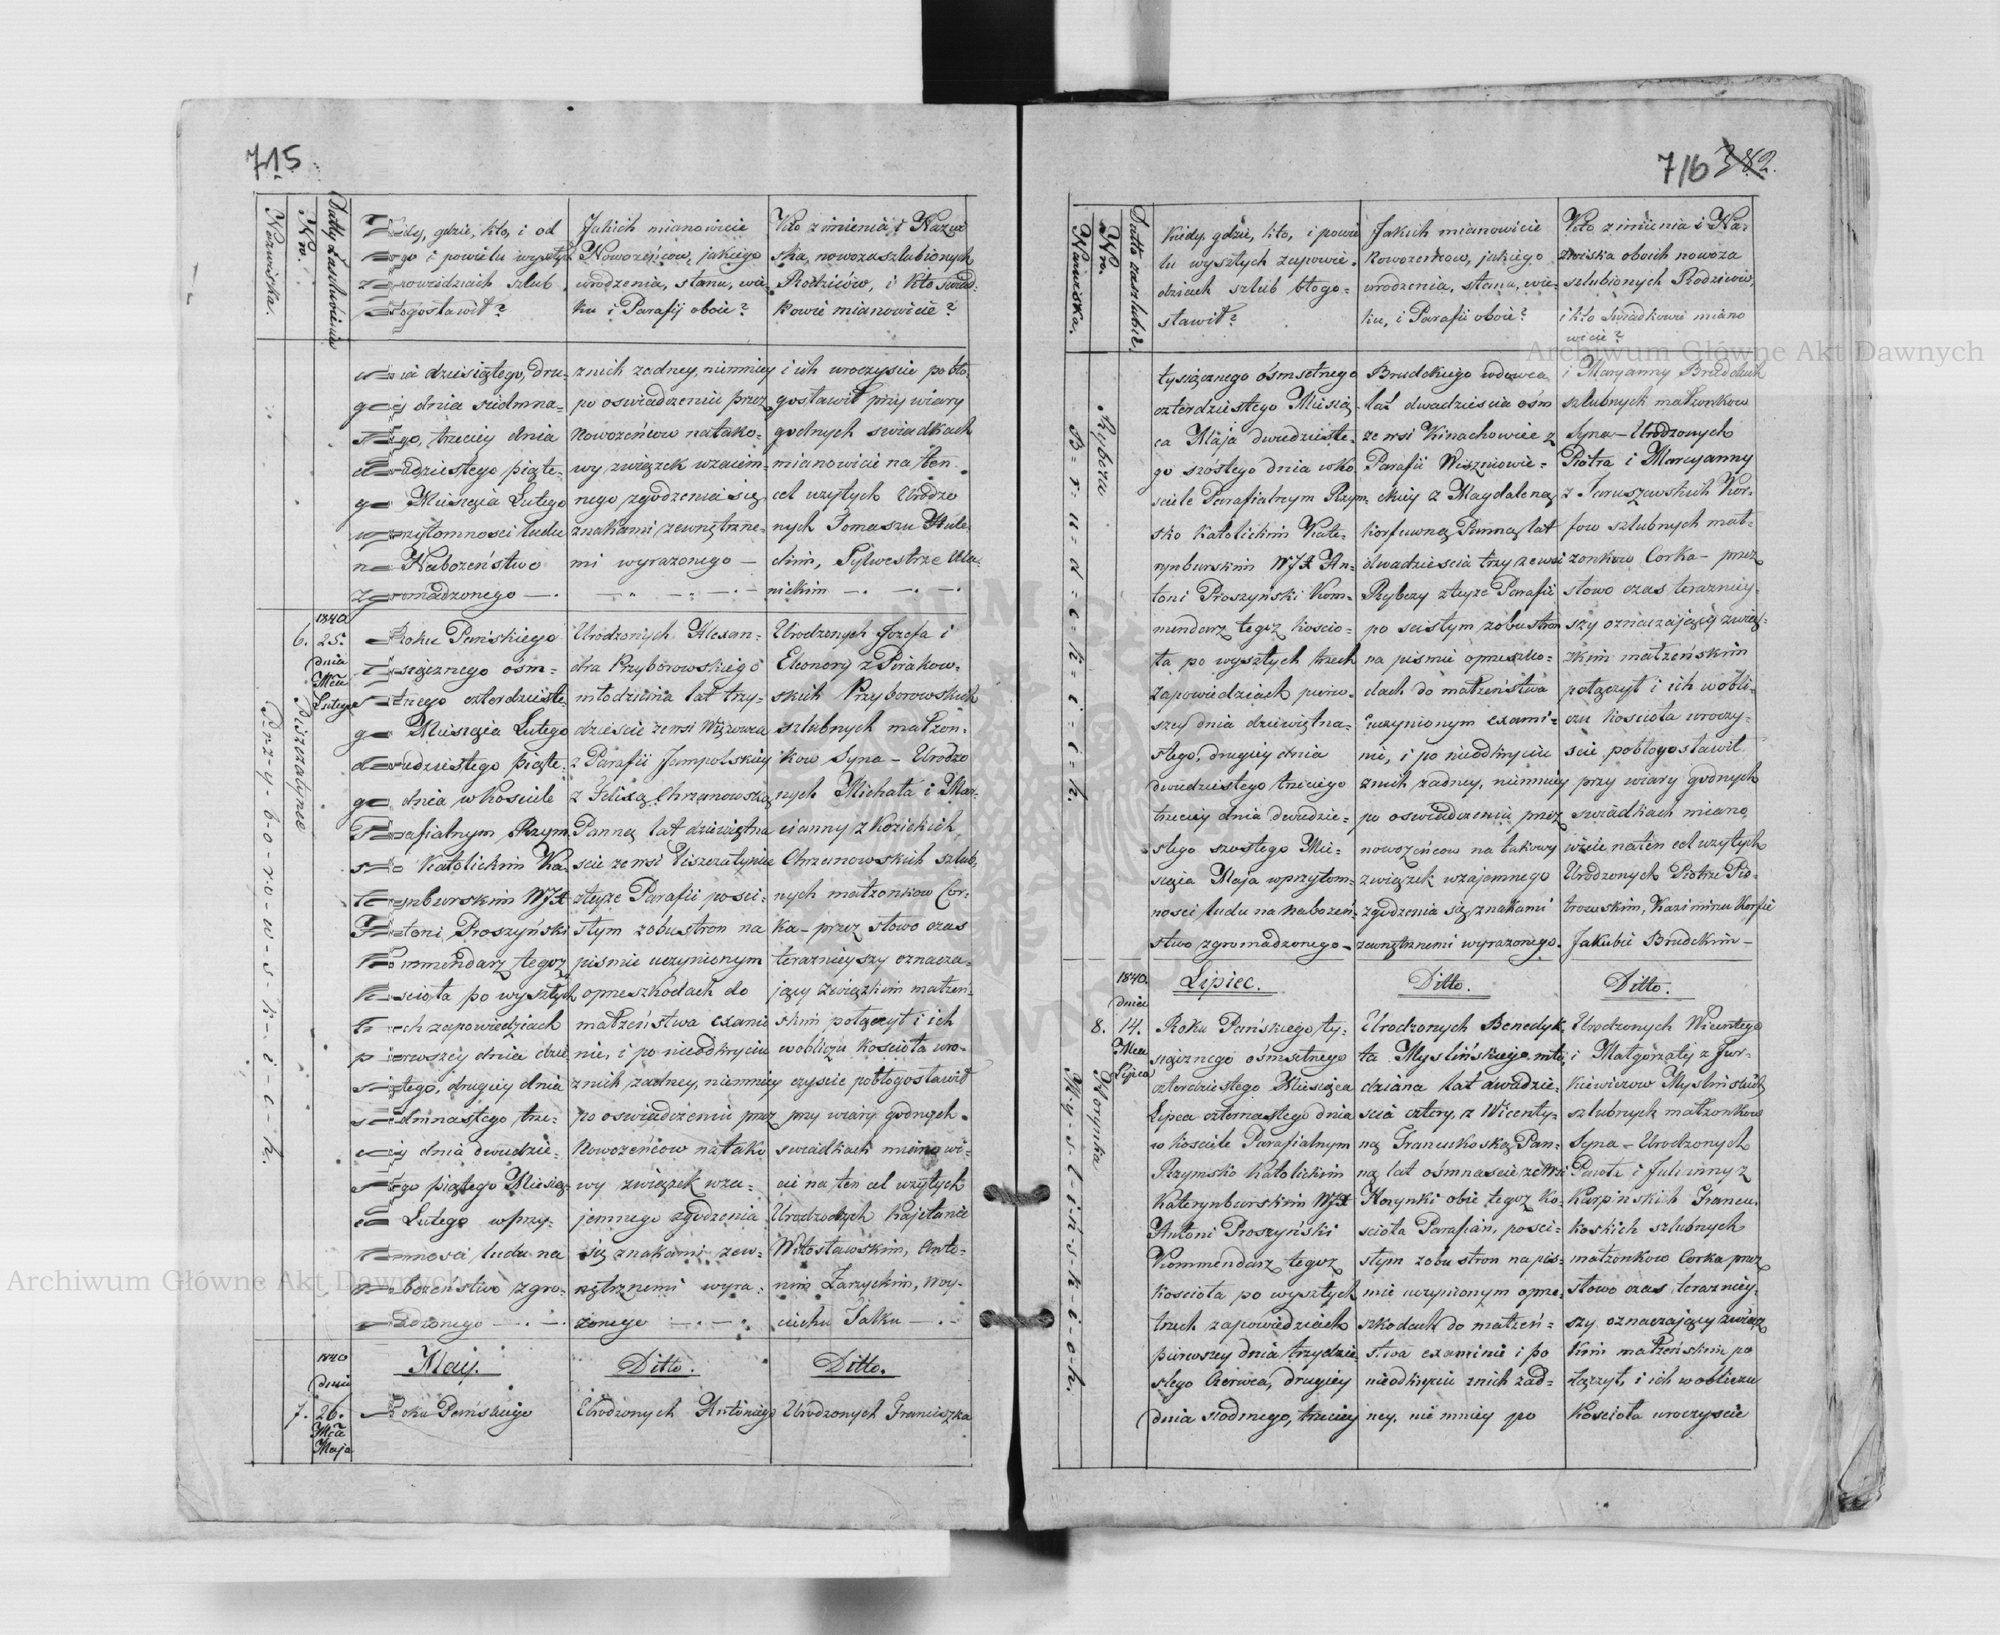 715
Datty Zaszlubienia
Nro.
Nazwiska.
Kiedy, gdzie, kto, i od
kogo i powielu wyszłych
zapowiedziach szlub
błogosławił?
Jakich mianowicie
Nowożeńcow, jakiego
urodzenia, stanu, wie-
ku i Parafij oboie?
Kto z imienia i Nazwi
ska, nowozaszlubionych
Rodziców, i kto swiad-
kowie mianowicie?
dziesiątego, dru-
giey dnia siedmna-
stego, trzeciey dnia
dwudziestego piąte-
go Miesiąca Lutego
wprzytomnosci ludu
na Nabożeństwo
zgromadzonego —.
znich zadney, niemniey
po oswiadczeniu przez
Nowożeńcow natako-
wy związek wzaiem-
nego zgodzenia się
znakami zewnętrzne-
mi wyrazonego —
i ich uroczyscie pobło-
gosławił przy wiary
godnych swiadkach
mianowicie na ten
cel użytych Urodzo
nych Tomaszu
Sylwestrze
nickim —. —. —
1840
6. 25.
dnia
Mca
Lutego
Piszczatynce
P-r-z-y-b-o-r-o-w-s-k-i-c-h.
Roku Pańskiego
tysiącznego ósm-
setnego czterdzieste-
go Miesiąca Lutego
dwudziestego piąte-
go dnia w Kosciele
Parafialnym Rzym
sko Katolickim Ka-
terynburskim WJX
Antoni Proszyński
Kommendarz tegoż
Kościoła po wyszłych
trzech zapowiedziach
pierwszey dnia dzie
siątego, drugiey dnia
siedmnastego trze-
ciey dnia dwudzie-
stego piątego Miesią-
ca Lutego wprzy-
tomnosci ludu na
nabożeństwo zgro-
madzonego —. —.
Urodzonych Alexan-
dra Przyborowskiego
młodziana lat trzy-
dziescie ze wsi
z Parafii Jampolskiey
z Felixą Chrzanowską
Panną lat dziewiętna
scie ze wsi Piszczatyniec
zteyże Parafii po sci-
słym zobustron na
pismie uczynionym
opreszkodach do
małżeństwa exami
nie, i po nieodkryciu
znich zadney, niemniey
po oswiadczeniu przez
Nowożeńcow natako
wy związek wza-
jemnego zgodzenia
się znakami zew-
nętrznemi wyra-
zonego —. —.
Urodzonych Jozefa i
Eleonory z
skich Przyborowskich
szlubnych małzon-
kow Syna – Urodzo
nych Michała i Mar-
cianny z Kozickich
Chrzanowskich szlub-
nych małzonkow Cor-
ka – przez słowo czas
teraznieyszy oznacza-
jący związkim małżeń-
skim połączył i ich
wobliczu Kościoła uro-
czyscie pobłogosławił
przy wiary godnych
swiadkach mianowi-
cie na ten cel użytych
Urodzonych Kajetanie
Witosławskim, Anto-
nim Zarzyckim, Woy-
ciechu Salku —. —
1840
dnia
7. 26.
Mca
Maja
May.
Ditto.
Ditto.
Roku Pańskiego
Urodzonych Antoniego
Urodzonych Franciszka
716 382.
Datta zaszlubie.
Nro.
Nazwiska.
Kiedy, gdzie, kto, i powie
lu wyszłych zapowie-
dziach szlub błogo-
sławił?
Jakich mianowicie
Nowożeńcow, jakiego
urodzenia, stanu, wie-
ku, i Parafii oboie?
Kto z imienia i Na-
zwiska oboich nowoza
szlubionych Rodziców,
i kto Swiadkowie miano
wicie?
Rybcza
B-r-u-d-c-k-i-c-h.
tysiącznego ósmsetnego
czterdziestego Miesią
ca Maja dwudzieste-
go szóstego dnia wko
sciele Parafialnym Rzym
sko Katolickim Kate-
rynburskim WJX An-
toni Proszynski Kom-
mendarz tegoż koscio-
ła po wyszłych trzech
zapowiedziach pierw-
szey dnia dziewiętna-
stego, drugiey dnia
dwudziestego trzeciego
trzeciey dnia dwudzie-
stego szostego Mie-
siąca Maja wprzytom-
nosci ludu na nabożeń-
stwo zgromadzonego –
Brudckiego wdowca
lat dwadziescia ośm
ze wsi Kinachowiec z
Parafii Wiszniowie-
ckiey z Magdaleną
Korfuwną Panną lat
dwadziescia trzy ze wsi
Rybczy zteyże Parafii
po scisłym zobustron
na pismie opreszko-
dach do małżeństwa
uczynionym exami-
nie, i po nieodkryciu
znich zadney, niemniey
po oswiadczeniu przez
nowożeńcow na takowy
związek wzajemnego
zgodzenia się znakami
zewnętrznemi wyrazonego.
i Maryanny Brudckich
szlubnych małzonkow
Syna – Urodzonych
Piotra i Marcyanny
z Jaruszewskich Kor-
fow szlubnych mał-
zonkow Corka – przez
słowo czas terazniey-
szy oznaczający związ-
kim małżeńskim
połączył i ich wobli-
czu kościoła uroczy-
scie pobłogosławił
przy wiary godnych
swiadkach miano
wicie na ten cel użytych
Urodzonych Piotrze Pio-
trowskim, Kazimirzu Korfie
Jakubie Brudckim –
1840.
dnia
8. 14.
Mca
Lipca
Horynka
M-y-s-l-i-ń-s-k-i-c-h.
Lipiec.
Ditto.
Ditto.
Roku Pańskiego ty-
siącznego ośmsetnego
czterdziestego Miesiąca
Lipca czternastego dnia
w kościele Parafialnym
Rzymsko Katolickim
Katerynburskim WJX
Antoni Proszyński
Kommendarz tegoż
Kościoła po wyszłych
trzech zapowiedziach
pierwszey dnia trzydzie-
stego Czerwca, drugiey
dnia siodmego, trzeciey
Urodzonych Benedyk-
ta Myslińskiego mło-
dziana lat dwadzie-
scia cztery, z Wicenty-
ną Francukoską Pan-
ną lat ośmnascie ze wsi
Horynki obie tegoż Ko-
scioła Parafian, po sci-
słym zobustron na pis-
mie uczynionym opre-
szkodach do małżeń-
stwa examinie i po
nieodkryciu znich zad-
ney, niemniey po
Urodzonych Wicentego
i Małgorzaty z Jur-
kiewiczow Myslinskich
szlubnych małzonkow
Syna – Urodzonych
Pawła i Julianny z
Karpińskich Francu-
koskich szlubnych
małzonkow Corka przez
słowo czas teraznіey-
szy oznaczający związ
kim małżeńskim po
łączył, i ich wobliczu
Kościoła uroczyscie
Archiwum Główne Akt Dawnych
Archiwum Główne Akt Dawnych